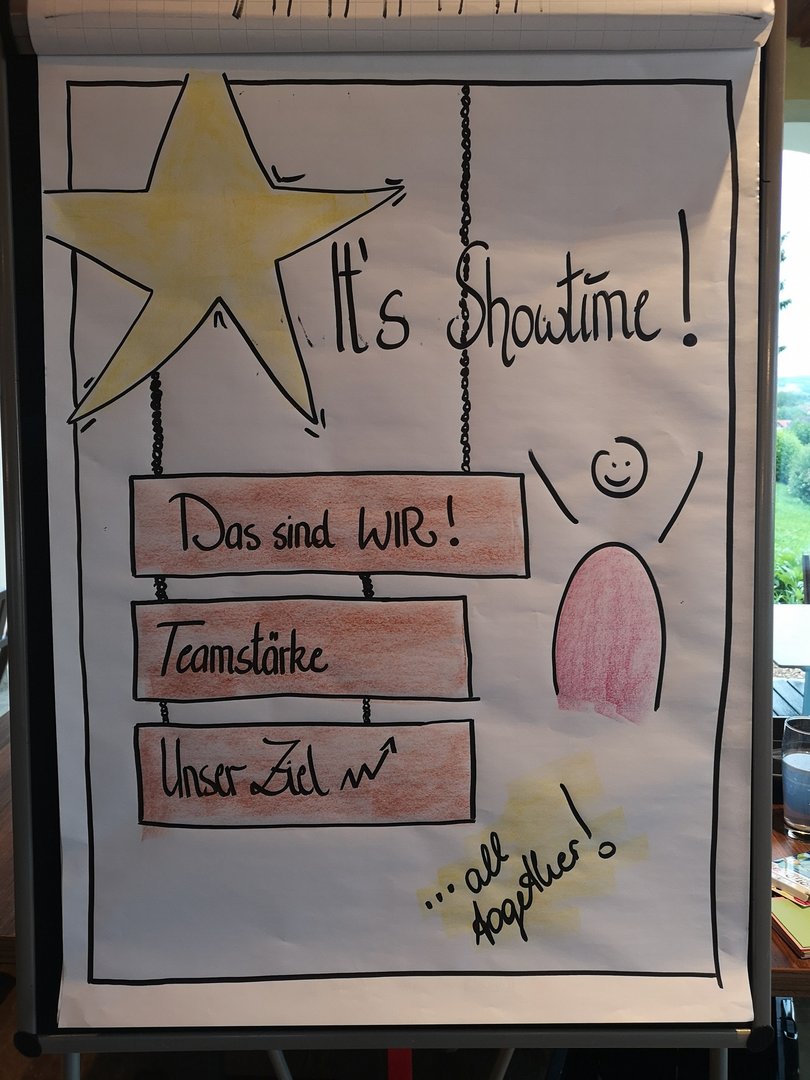 It's Showtime!
Das sind WIR!
Teamstärke
Unser Ziel
...all
together!